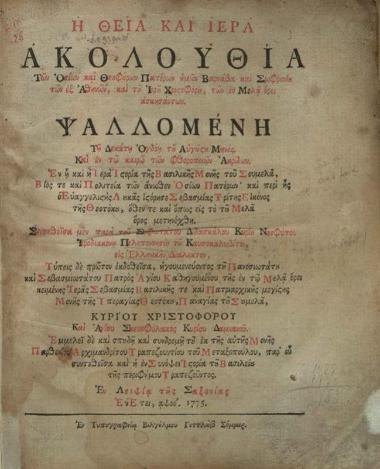 Η ΘΕΙΑ ΚΑΙ ΙΕΡΑ
ΑΚΟΛΟΥΘΙΑ
Τῶν Ὁσίων καὶ Θεοφόρων Πατέρων ἡμῶν Βαρνάβα καὶ Σωφρονίου
τῶν ἐξ Ἀθηνῶν, καὶ τοῦ Ἱεροῦ Χριστοφόρου, τῶν ἐν Μελᾷ ὄρει
ἀσκησάντων.
ΨΑΛΛΟΜΕΝΗ
Τῇ Δεκάτῃ Ὀγδόῃ τοῦ Αὐγούστου Μηνός.
Καὶ ἐν τῷ καιρῷ τῶν φθοροποιῶν Ἀκρίδων.
Ἐν ᾗ καὶ ἡ Ἱερὰ Ἱστορία τῆς Βασιλικῆς Μονῆς τοῦ Σουμελᾶ,
Βίος τε καὶ Πολιτεία τῶν ἄνωθεν Ὁσίων Πατέρων· καὶ περὶ ἧς
ὁ Εὐαγγελικὴς Λουκᾶς ἱστόρησε Σεβασμίας Τρίτης Εἰκόνος
τῆς Θεοτόκου, ὅθεν τε καὶ ὅπως εἰς τὸ τοῦ Μελᾶ
ὄρος μετηνέχθη.
Συντεθεῖσα μὲν παρὰ τοῦ Σοφωτάτου Διδασκάλου Κυρίου Νεοφύτου
Ἱεροδιακόνου Πελοποννησίου τοῦ Καυσοκαλυβίτου,
εἰς Ἑλληνικὴν Διάλεκτον,
Τύποις δὲ πρῶτον ἐκδοθεῖσα, ἡγουμενεύοντος τοῦ Πανοσιωτάτου
καὶ Σεβασμιωτάτου Πατρὸς Ἁγίου Καθηγουμένου τῆς ἐν τῷ Μελᾷ ὄρει
κειμένης Ἱερᾶς Σεβασμίας Βασιλικῆς τε καὶ Πατριαρχικῆς μεγίστης
Μονῆς τῆς Ὑπεραγίας Θεοτόκου, Παναγίας τοῦ Σουμελᾶ,
ΚΥΡΙΟΥ ΧΡΙΣΤΟΦΟΡΟΥ
Καὶ Ἁγίου Σκευοφύλακος Κυρίου Δαμιανοῦ.
Ἐπιμελείᾳ δὲ καὶ σπουδῇ καὶ συνδρομῇ τοῦ ἐκ τῆς αὐτῆς Μονῆς
Παρθενίου Ἀρχιμανδρίτου Τραπεζουντίου τοῦ Μεταξοπούλου, παρ' οὗ
συνετέθεισα καὶ ἡ ἐν Συνόψει Ἱστορία τοῦ Βασιλείου
τῆς περιφήμου Τραπεζοῦντος.
Ἐν Λειψίᾳ τῆς Σαξονίας
Ἐν Ἔτει, αψοε΄. 1775.
Ἐν Τυπογραφείῳ Βιλγέλμου Γοττελώβ Σόμμερ.